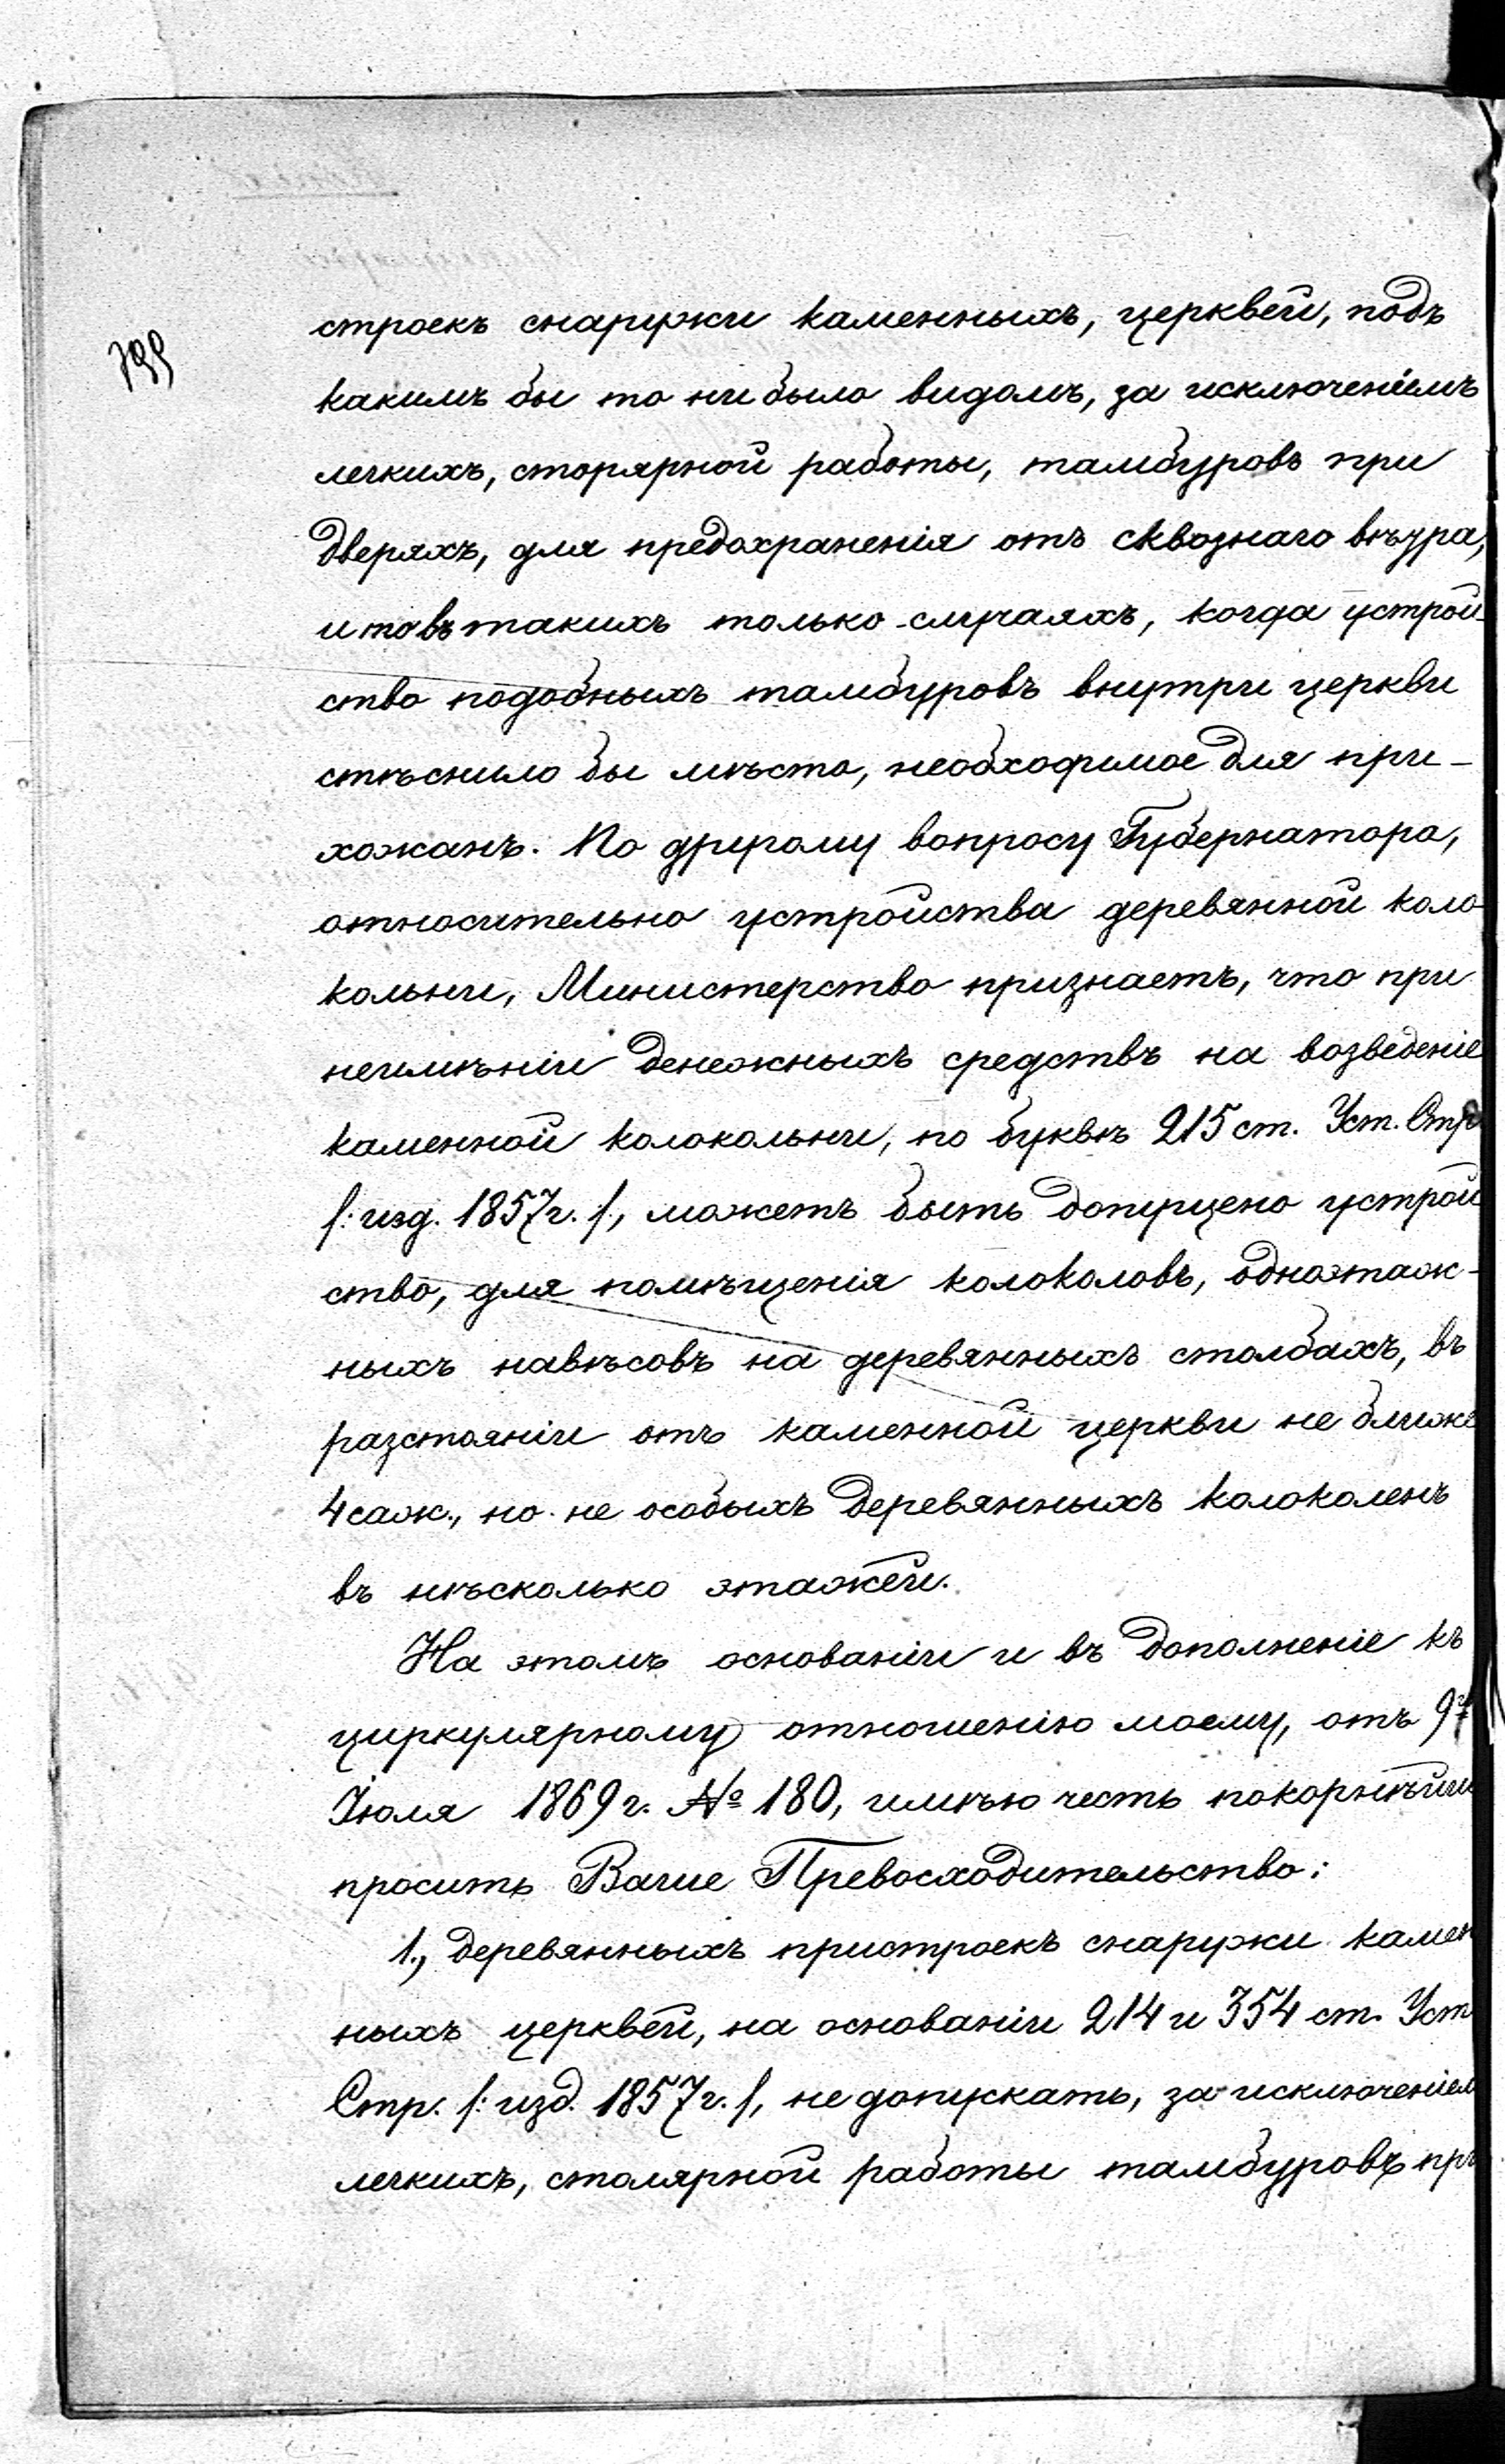 строекъ снаружи каменныхъ, церквей, подъ
какимъ бы то ни было видомъ, за исключеніемъ
легкихъ, сторярной работы, тамбуровъ при
дверяхъ, для предохраненія отъ сквознаго вѣтра,
и то въ такихъ только случаяхъ, когда устрой-
ство подобныхъ тамбуровъ внутри церкви
стѣснило бы мѣсто, необходимое для при-
хожанъ. По другому вопросу Губернатора,
относительно устройства деревянной коло
кольни, Министерство признаетъ, что при
неимѣніи денежныхъ средствъ на возведеніе
каменной колокольни, по буквѣ 215 ст. Уст. Стр
/: изд. 1857 г. /, можетъ быть допущено устрой
ство, для помѣщенія колоколовъ, одноэтаж-
ныхъ навѣсовъ на деревянныхъ столбахъ, въ
разстояніи отъ каменной церкви не ближе
4 саж., но не особыхъ деревянныхъ колоколенъ
въ нѣсколько этажей.
На этомъ основаніи и въ дополненіе къ
циркулярному отношенію моему, отъ 9го
Іюля 1869 г. № 180, имѣю честь покорнѣйше
просить Ваше Превосходительство:
1., деревянныхъ пристроекъ снаружи камен
ныхъ церквей, на основаніи 214 и 354 ст. Уст
Стр. /: изд. 1857 г. /, не допускать, за исключеніем
легкихъ, столярной работы тамбуровъ при